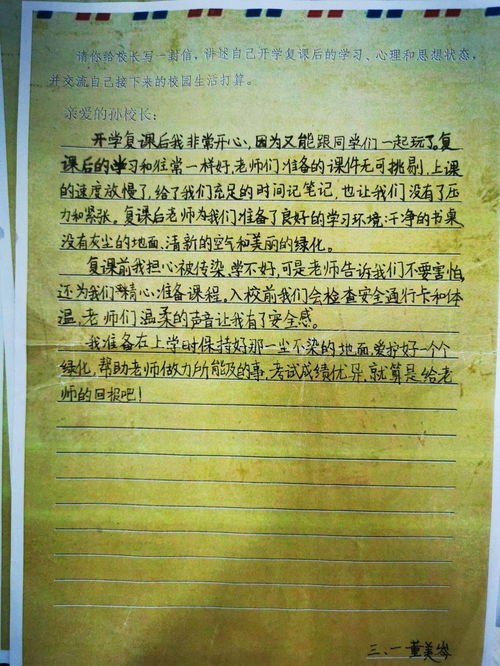 请你给校长写一封信，讲述自己开学复课后的学习、心理和思想状态，
并交流自己接下来的校园生活打算。
亲爱的孙校长：
开学复课后我非常开心，因为又能跟同学们一起玩了。复
课后的学习和往常一样好，老师们准备的课件无可挑剔，上课
的速度放慢了，给了我们充足的时间记笔记，也让我们没有了压
力和紧张。复课后老师为我们准备了良好的学习环境：干净的书桌
没有灰尘的地面、清新的空气和美丽的绿化。
复课前我担心被传染，学不好，可是老师告诉我们不要害怕，
还为我们精心准备课程。入校前我们会检查安全通行卡和体
温，老师们温柔的声音让我有了安全感。
我准备在上学时保持好那一尘不染的地面，爱护好一个个
绿化，帮助老师做力所能及的事，考试成绩优异，就算是给老
师的回报吧！
三、一董美岑